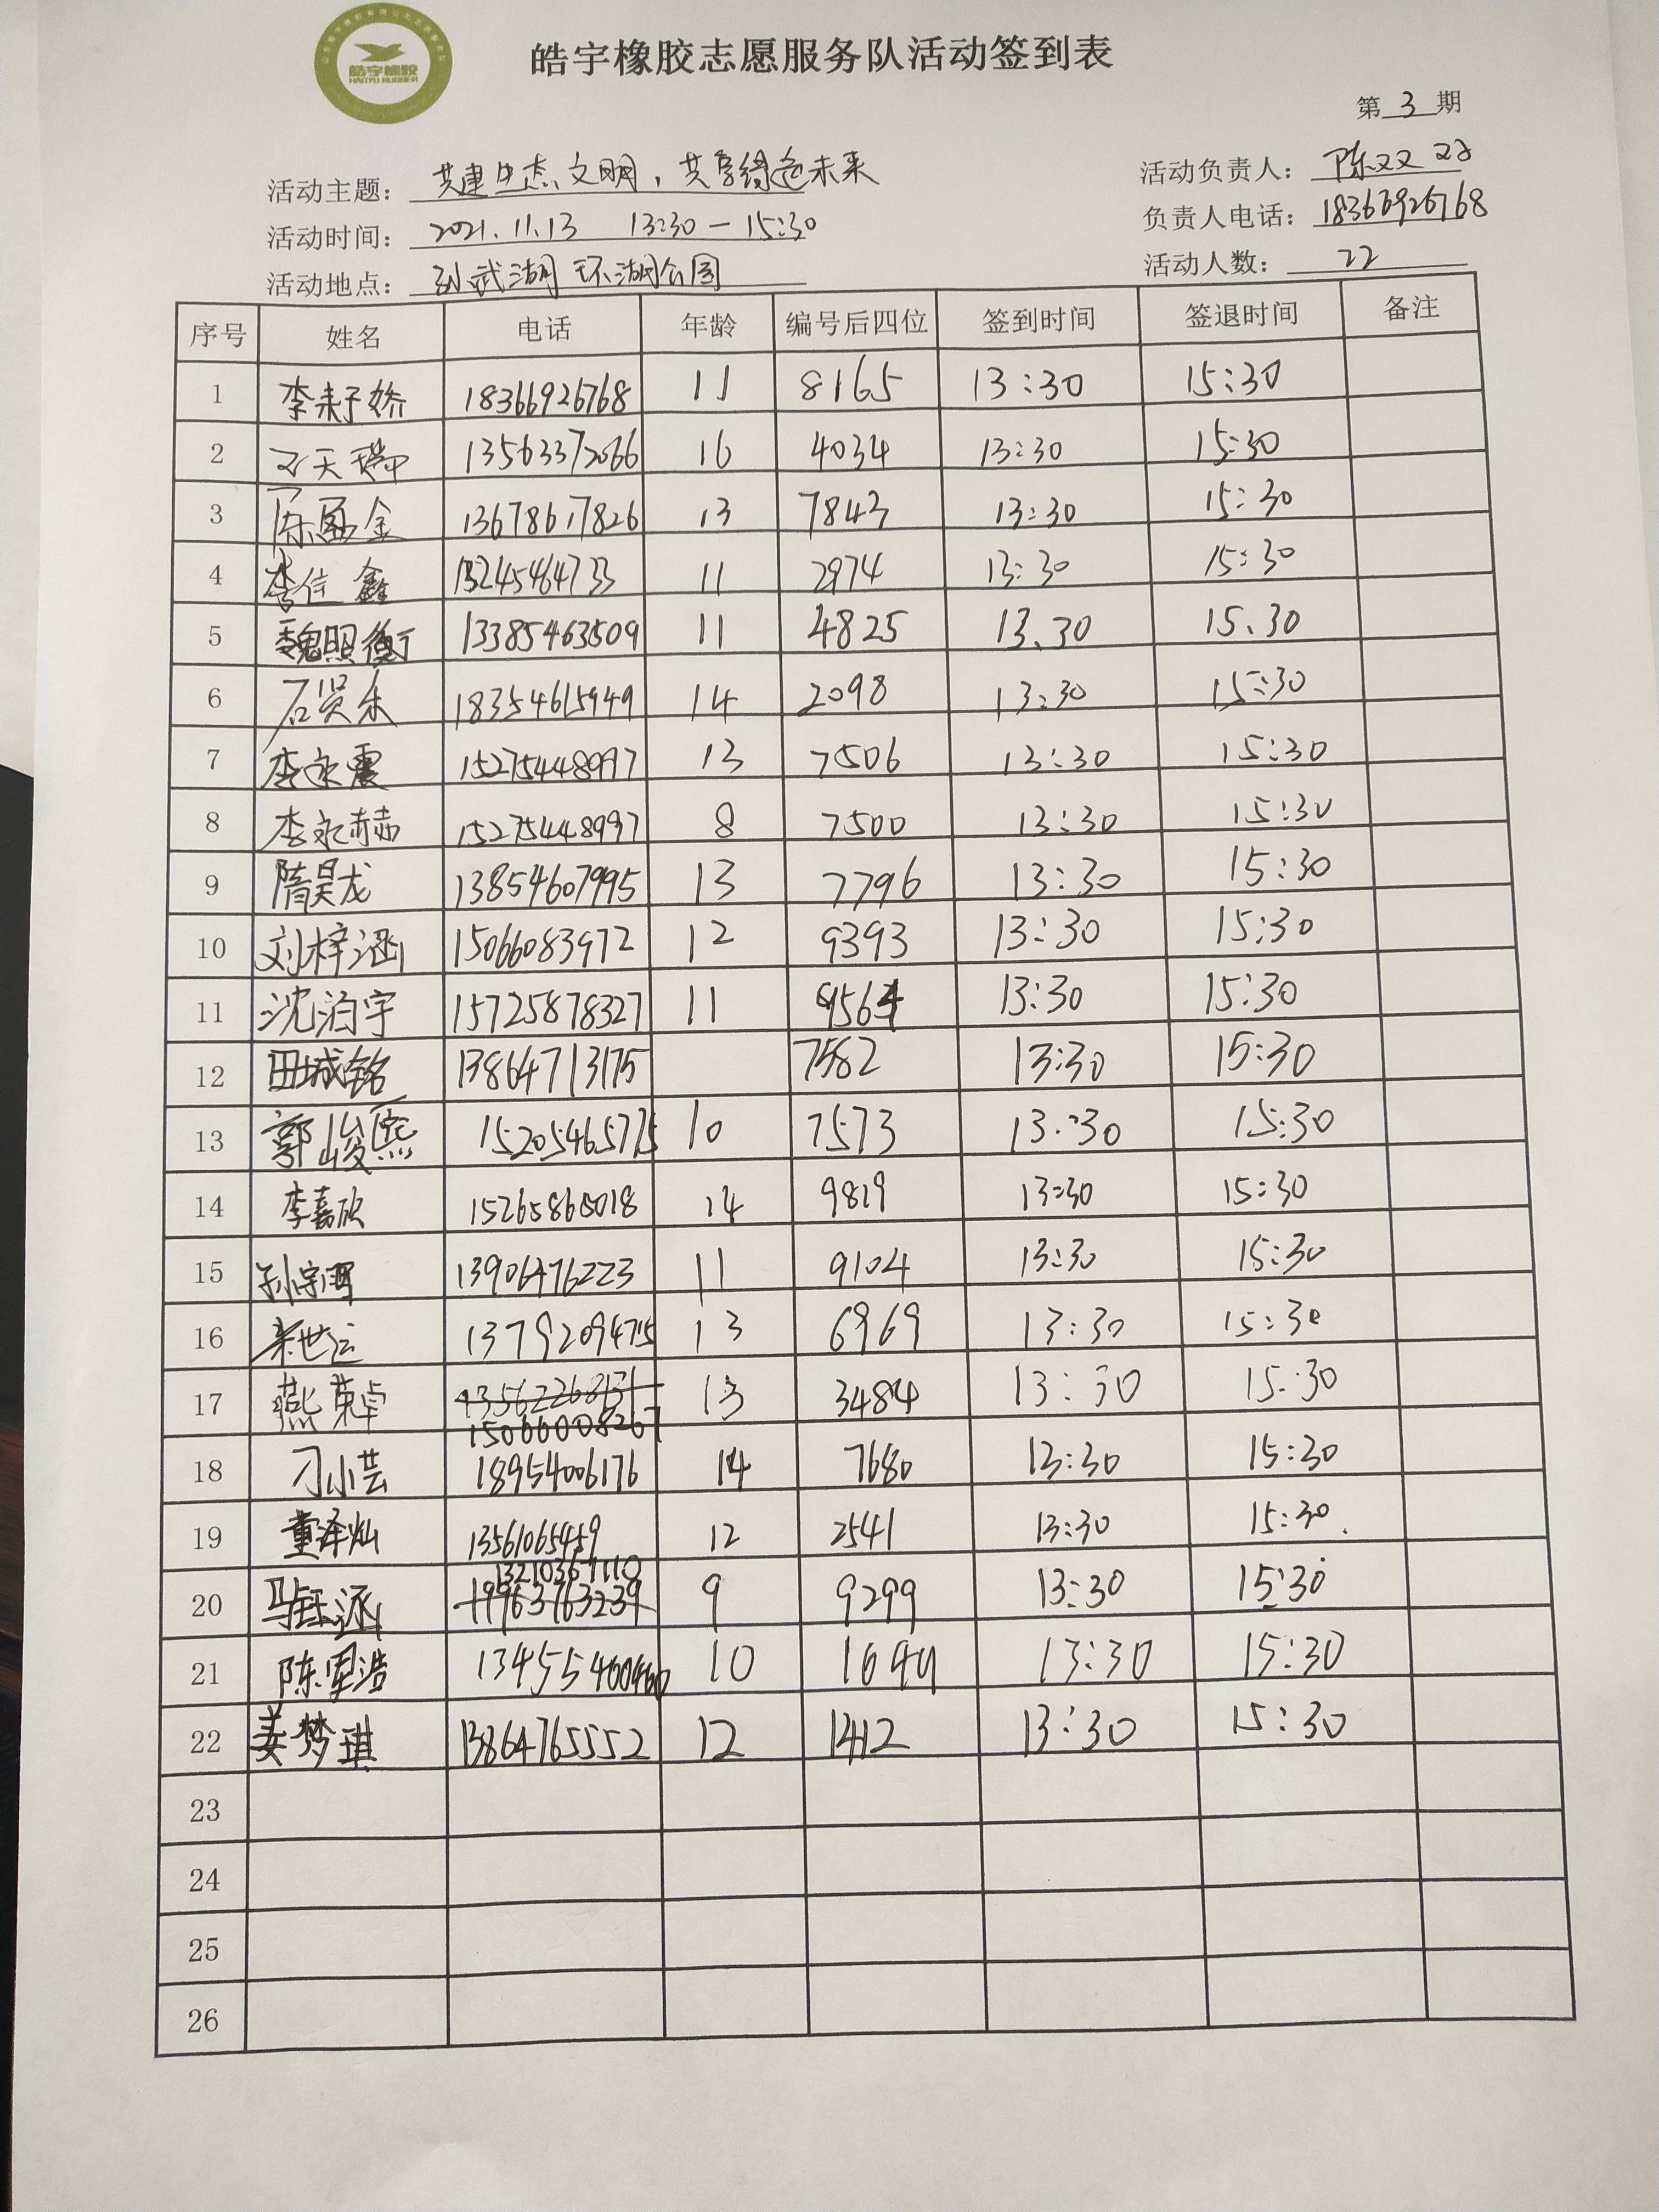 皓宇橡胶
HAOYU RUBBER
皓宇橡胶志愿服务队活动签到表
第 3 期
活动主题: 共建生态文明,共享绿色未来 活动负责人: 陈双双
活动时间: 2021.11.13 13:30-15:30 负责人电话: 18366926768
活动地点: 孙武湖环湖公园 活动人数: 22
序号 姓名 电话 年龄 编号后四位 签到时间 签退时间 备注
1 李耔娇 18366926768 11 8165 13:30 15:30
2 天瑞 13563372066 16 4034 13:30 15:30
3 陈 金 13678617826 13 7843 13:30 15:30
4 李佳鑫 13245464733 11 2974 13:30 15:30
5 魏照衡 13385463509 11 4825 13.30 15.30
6 石贤禾 18354615949 14 2098 13:30 15:30
7 李永震 15275448997 13 7506 13:30 15:30
8 李永赫 15275448997 8 7500 13:30 15:30
9 隋昊龙 13854607995 13 7796 13:30 15:30
10 刘梓涵 15066083972 12 9393 13:30 15:30
11 沈泊宇 15725878327 11 9564 13:30 15:30
12 田城铭 13864713175 7582 13:30 15:30
13 郭峻熙 15205465775 10 7573 13:30 15:30
14 李嘉欣 15265865018 14 9819 13:30 15:30
15 孙宇 13906476223 11 9104 13:30 15:30
16 世运 13792094715 13 6969 13:30 15:30
17 燕 卓 13562268131 13 3484 13:30 15:30
150660008267
18 刁小芸 18954006176 14 7680 13:30 15:30
19 董泽灿 13561065459 12 2541 13:30 15:30.
13210367110
20 马钰涵 19963763239 9 9299 13:30 15:30
21 陈军浩 13455460460 10 1649 13:30 15:30
22 姜梦琪 13864765552 12 1412 13:30 15:30
23
24
25
26